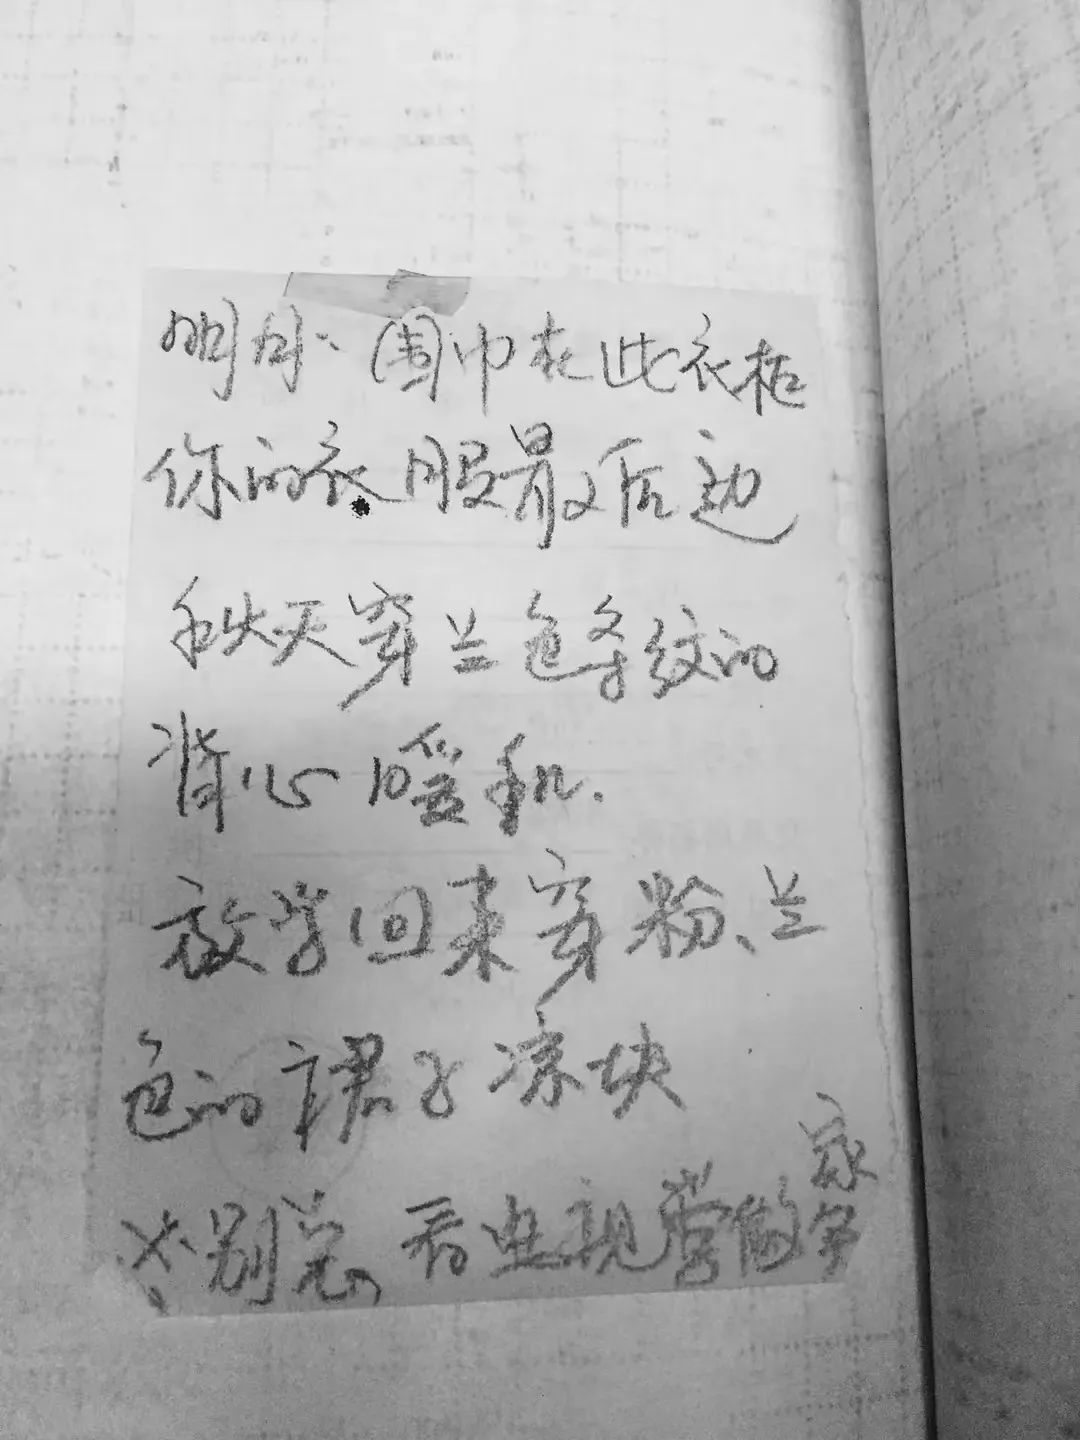 明月、围巾在此衣柜
你的衣服最后边
秋天穿兰色条纹的
背心暖和.
放学回来穿粉、兰
色的裙子凉快
※别总看电视学做家务